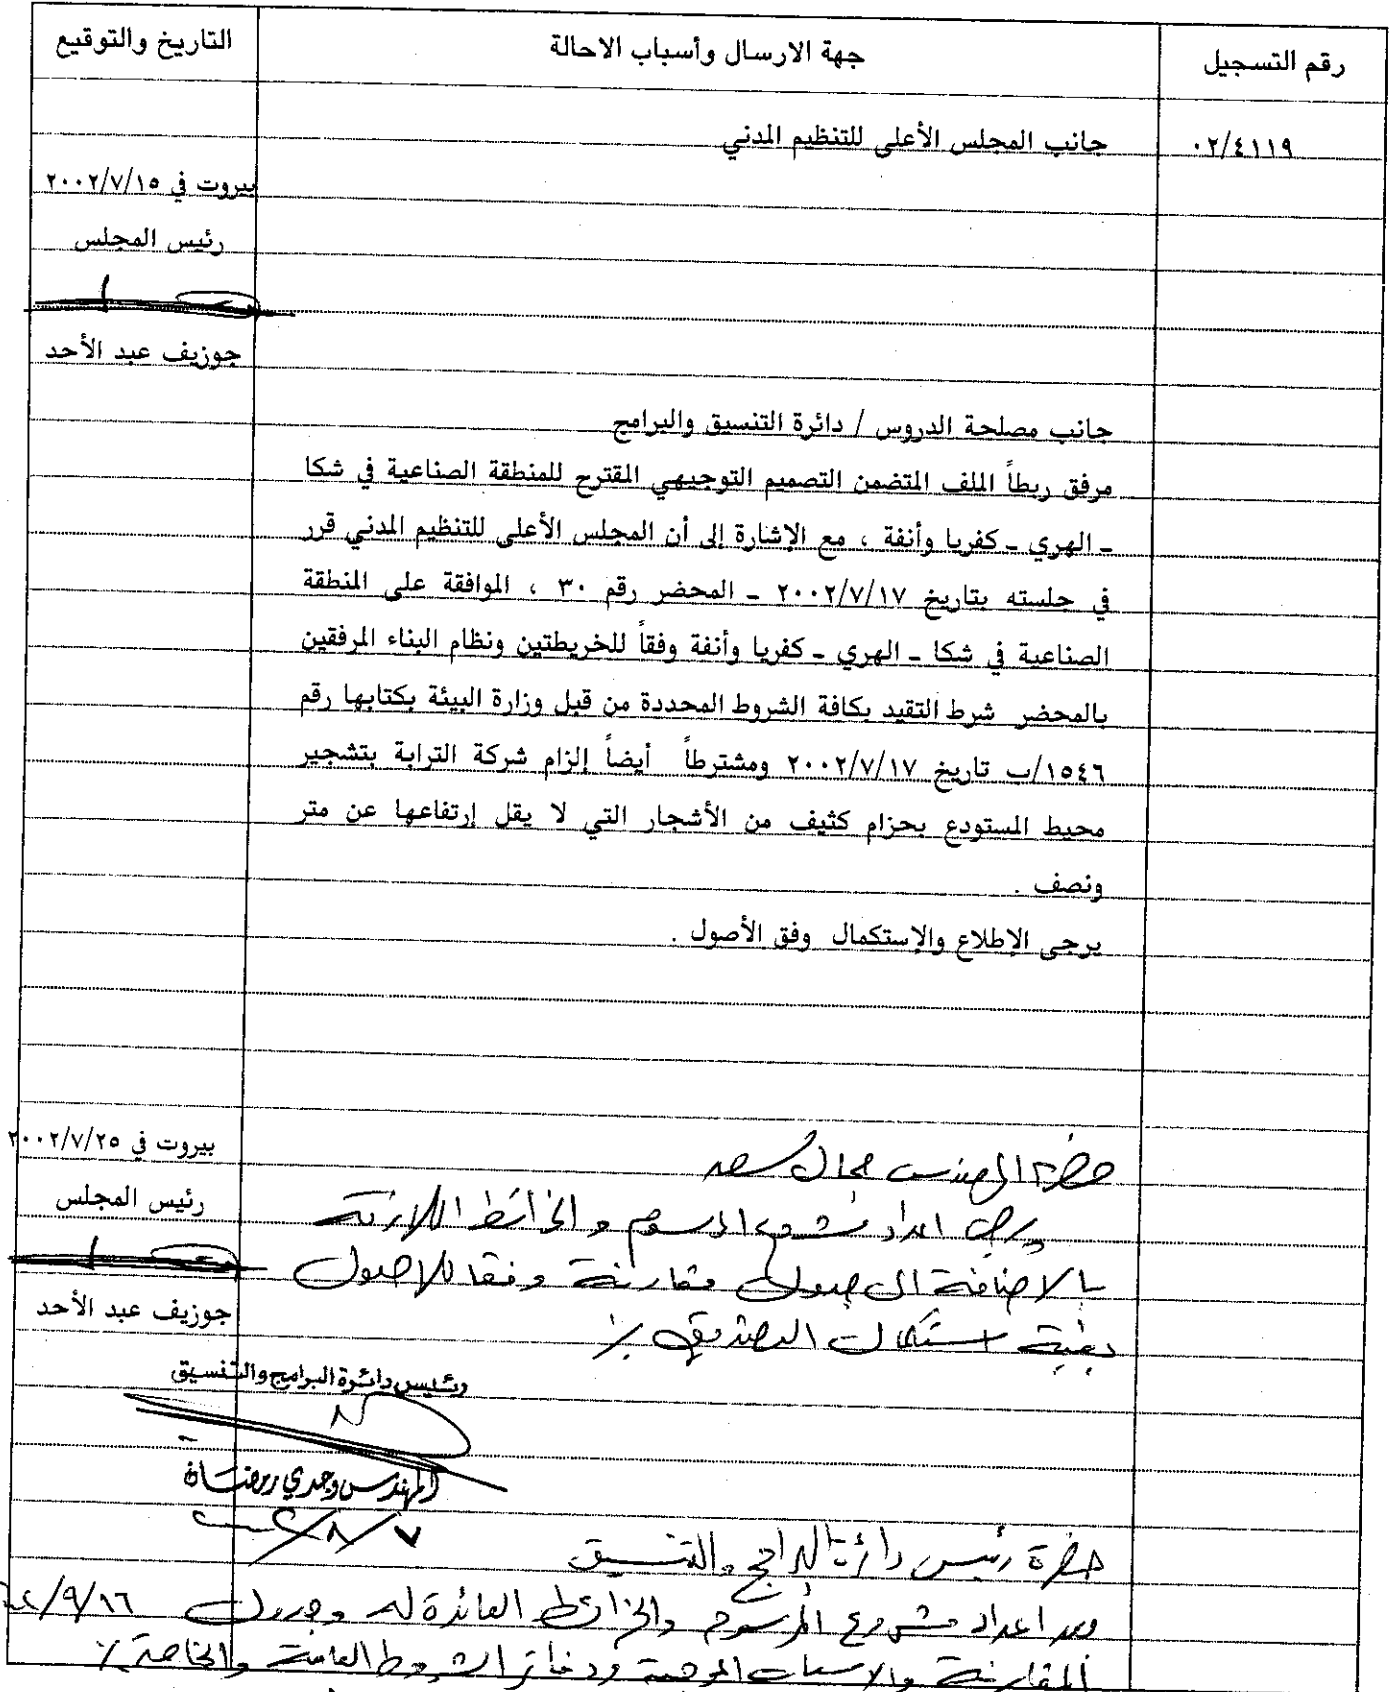 رقم التسجيل
جهة الارسال وأسباب الاحالة
التاريخ والتوقيع
٠٢/٤١١٩
جانب المجلس الأعلى للتنظيم المدني
بيروت في ٢٠٠٢/٧/١٥
رئيس المجلس
جوزيف عبد الأحد
جانب مصلحة الدروس / دائرة التنسيق والبرامج
مرفق ربطاً الملف المتضمن التصميم التوجيهي المقترح للمنطقة الصناعية في شكا
ـ الهري ـ كفريا وأنفة ، مع الإشارة إلى أن المجلس الأعلى للتنظيم المدني قرر
في جلسته بتاريخ ٢٠٠٢/٧/١٧ ـ المحضر رقم ٣٠ ، الموافقة على المنطقة
الصناعية في شكا ـ الهري ـ كفريا وأنفة وفقاً للخريطتين ونظام البناء المرفقين
بالمحضر شرط التقيد بكافة الشروط المحددة من قبل وزارة البيئة بكتابها رقم
١٥٤٦/ب تاريخ ٢٠٠٢/٧/١٧ ومشترطاً أيضاً إلزام شركة الترابة بتشجير
محيط المستودع بحزام كثيف من الأشجار التي لا يقل إرتفاعها عن متر
ونصف .
يرجى الإطلاع والإستكمال وفق الأصول .
بيروت في ٢٠٠٢/٧/٢٥
رئيس المجلس
جوزيف عبد الأحد
حضرة المهندس سعد
يرجى اعداد مشروع المرسوم و الخرائط اللازمة
بالاضافة الى جدول مقارنة وفقا للاصول
بغية استكمال التصديق ./
رئيس دائرة البرامج والتنسيق
المهندس وجدي رمضان
٢٠٠٢/٨/٧
حضرة رئيس دائرة البرامج والتنسيق
اعداد مشروع المرسوم والخرائط العائدة له وجدول
٩/١٦
المقارنة والاسباب الموجبة ودفاتر الشروط العامة والخاصة ./